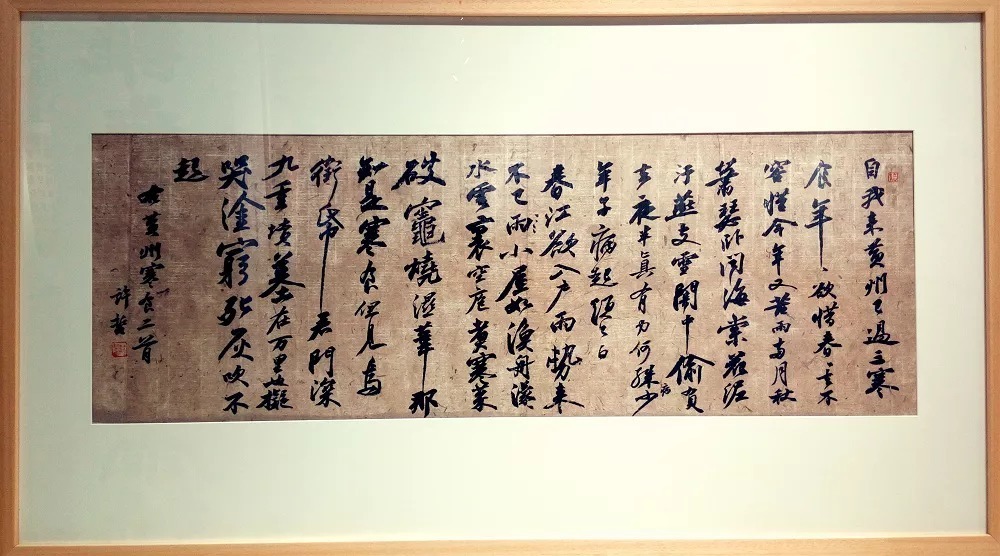 自我来黄州已過三寒
食年〻欲惜春〻去不
容惜今年又苦雨兩月秋
蕭瑟卧聞海棠花泥
汙燕支雪闇中偷負
去夜半真有力何殊少
病
年子病起頭已白
春江欲入户雨勢来
不已雨小屋如漁舟濛
水雲裏空庖煮寒菜
破竈燒濕葦那
知是寒食但見烏
銜帋君門深
九重墳墓在万里也擬
哭塗窮死灰吹不
起
右黄州寒食二首
許哲